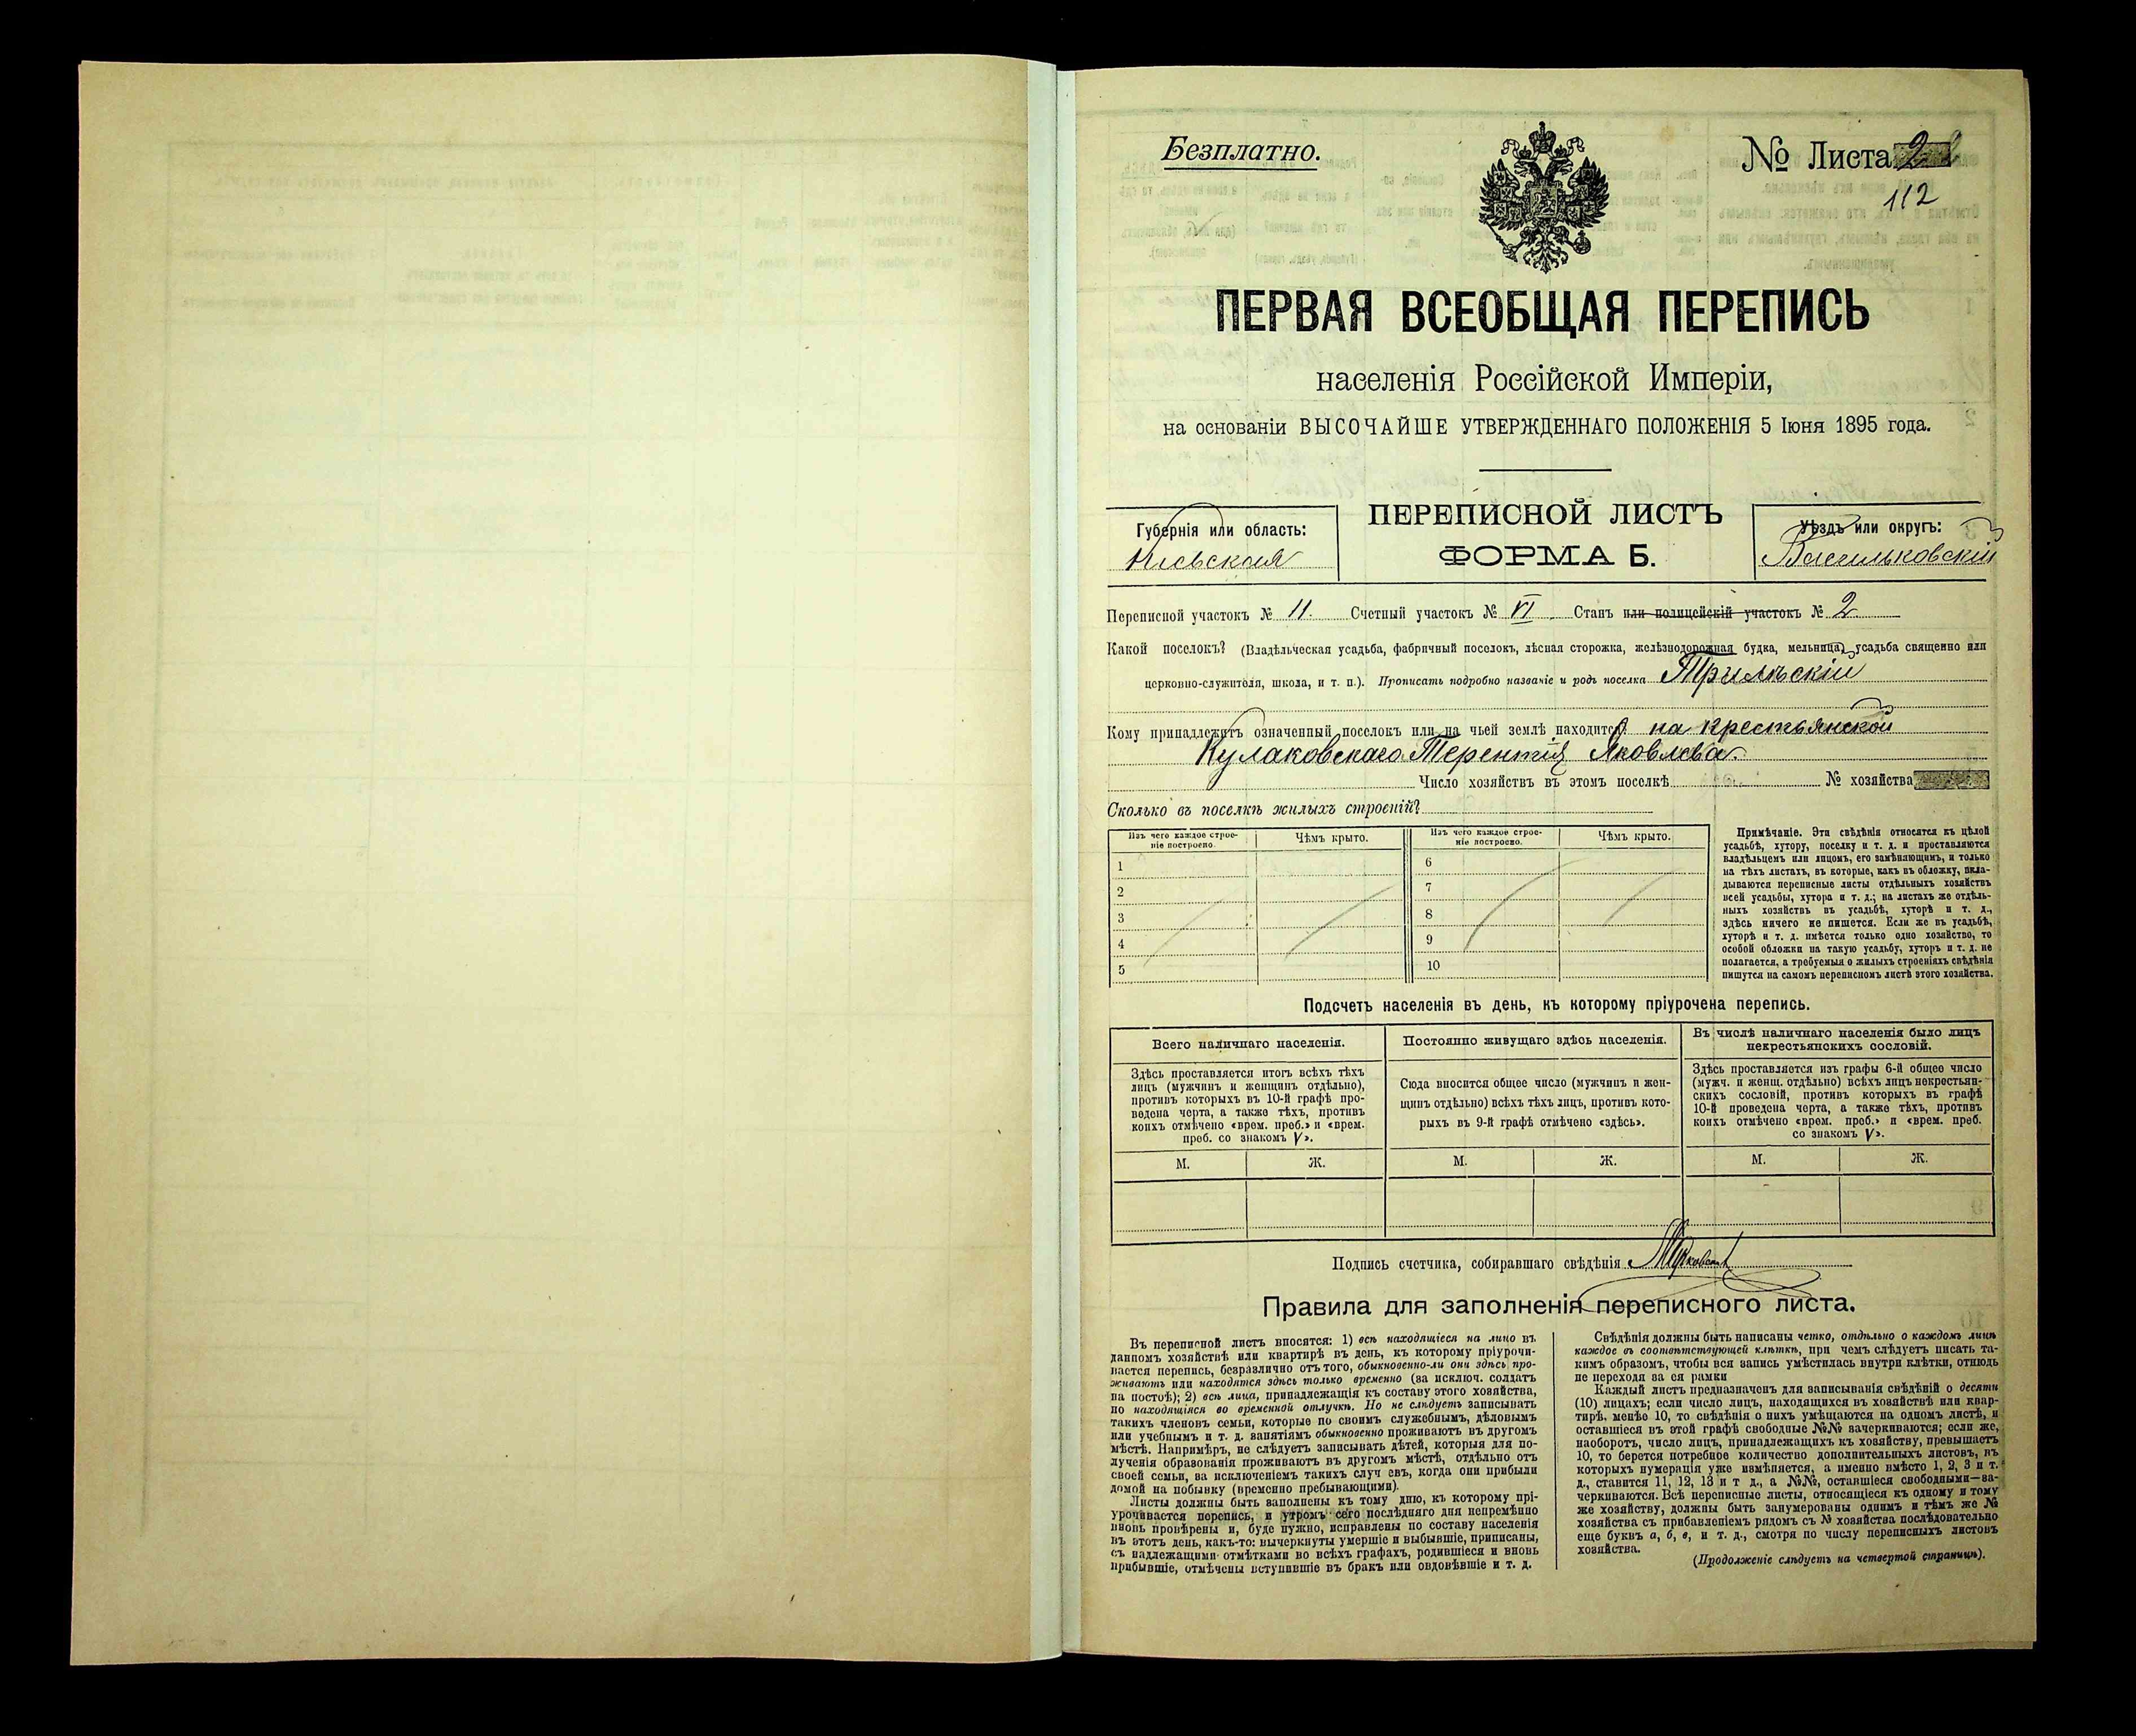 Безплатно.
№ Листа 2
112
ПЕРВАЯ ВСЕОБЩАЯ ПЕРЕПИСЬ
населенія Россійской Имперіи,
на основаніи ВЫСОЧАЙШЕ УТВЕРЖДЕННАГО ПОЛОЖЕНІЯ 5 Іюня 1895 года.
ПЕРЕПИСНОЙ ЛИСТЪ
ФОРМА Б.
Губернія или область:
Кіевская
Уѣздъ или округъ:
Васильковскій
Переписной участокъ № 11. Счетный участокъ № VI. Станъ или полицейскій участокъ № 2
Какой поселокъ? (Владѣльческая усадьба, фабричный поселокъ, лѣсная сторожка, желѣзнодорожная будка, мельница, усадьба священно или
церковно-служителя, школа, и т. п.). Прописать подробно названіе и родъ поселка Трилѣскій
Кому принадлежитъ означенный поселокъ или на чьей землѣ находится? на крестьянской
Кулаковскаго Терентія Яковлева.
Число хозяйствъ въ этомъ поселкѣ № хозяйства
Сколько въ поселкѣ жилыхъ строеній?
Изъ чего каждое строе-
ніе построено.
Чѣмъ крыто.
Изъ чего каждое строе-
ніе построено.
Чѣмъ крыто.
1 6
2 7
3 8
4 9
5 10
Примѣчаніе. Эти свѣдѣнія относятся къ цѣлой
усадьбѣ, хутору, поселку и т. д. и проставляются
владѣльцемъ или лицомъ, его замѣняющимъ, и только
на тѣхъ листахъ, въ которые, какъ въ обложку, вкла-
дываются переписные листы отдѣльныхъ хозяйствъ
всей усадьбы, хутора и т. д.; на листахъ же отдѣль-
ныхъ хозяйствъ въ усадьбѣ, хуторѣ и т. д.,
здѣсь ничего не пишется. Если же въ усадьбѣ,
хуторѣ и т. д. имѣется только одно хозяйство, то
особой обложки на такую усадьбу, хуторъ и т. д. не
полагается, а требуемыя о жилыхъ строеніяхъ свѣдѣнія
пишутся на самомъ переписномъ листѣ этого хозяйства.
Подсчетъ населенія въ день, къ которому пріурочена перепись.
Всего наличнаго населенія.
Здѣсь проставляется итогъ всѣхъ тѣхъ
лицъ (мужчинъ и женщинъ отдѣльно),
противъ которыхъ въ 10-й графѣ про-
ведена черта, а также тѣхъ, противъ
коихъ отмѣчено «врем. преб.» и «врем.
преб. со знакомъ V».
М. Ж.
Постоянно живущаго здѣсь населенія.
Сюда вносится общее число (мужчинъ и жен-
щинъ отдѣльно) всѣхъ тѣхъ лицъ, противъ кото-
рыхъ въ 9-й графѣ отмѣчено «здѣсь».
М. Ж.
Въ числѣ наличнаго населенія было лицъ
некрестьянскихъ сословій.
Здѣсь проставляется изъ графы 6-й общее число
(мужч. и женщ. отдѣльно) всѣхъ лицъ некрестьян-
скихъ сословій, противъ которыхъ въ графѣ
10-й проведена черта, а также тѣхъ, противъ
коихъ отмѣчено «врем. преб.» и «врем. преб.
со знакомъ V».
М. Ж.
Подпись счетчика, собиравшаго свѣдѣнія
Правила для заполненія переписного листа.
Въ переписной листъ вносятся: 1) всѣ находящіеся на лицо въ
данномъ хозяйствѣ или квартирѣ въ день, къ которому пріурочи-
вается перепись, безразлично отъ того, обыкновенно-ли они здѣсь про-
живаютъ или находятся здѣсь только временно (за исключ. солдатъ
на постоѣ); 2) всѣ лица, принадлежащія къ составу этого хозяйства,
но находящіяся во временной отлучкѣ. Но не слѣдуетъ записывать
такихъ членовъ семьи, которые по своимъ служебнымъ, дѣловымъ
или учебнымъ и т. д. занятіямъ обыкновенно проживаютъ въ другомъ
мѣстѣ. Напримѣръ, не слѣдуетъ записывать дѣтей, которыя для по-
лученія образованія проживаютъ въ другомъ мѣстѣ, отдѣльно отъ
своей семьи, за исключеніемъ такихъ случ евъ, когда они прибыли
домой на побывку (временно пребывающими).
Листы должны быть заполнены къ тому дню, къ которому прі-
урочивается перепись, и утромъ сего послѣдняго дня непремѣнно
вновь провѣрены и, буде нужно, исправлены по составу населенія
въ этотъ день, какъ-то: вычеркнуты умершіе и выбывшіе, приписаны,
съ надлежащими отмѣтками во всѣхъ графахъ, родившіеся и вновь
прибывшіе, отмѣчены вступившіе въ бракъ или овдовѣвшіе и т. д.
Свѣдѣнія должны быть написаны четко, отдѣльно о каждомъ лицѣ
каждое въ соотвѣтствующей клѣткѣ, при чемъ слѣдуетъ писать та-
кимъ образомъ, чтобы вся запись умѣстилась внутри клѣтки, отнюдь
не переходя за ея рамки
Каждый листъ предназначенъ для записыванія свѣдѣній о десяти
(10) лицахъ; если число лицъ, находящихся въ хозяйствѣ или квар-
тирѣ, менѣе 10, то свѣдѣнія о нихъ умѣщаются на одномъ листѣ, и
оставшіеся въ этой графѣ свободные №№ зачеркиваются; если же,
наоборотъ, число лицъ, принадлежащихъ къ хозяйству, превышаетъ
10, то берется потребное количество дополнительныхъ листовъ, въ
которыхъ нумерація уже измѣняется, а именно вмѣсто 1, 2, 3 и т.
д., ставится 11, 12, 13 и т д., а №№, оставшіеся свободными—за-
черкиваются. Всѣ переписные листы, относящіеся къ одному и тому
же хозяйству, должны быть занумерованы однимъ и тѣмъ же №
хозяйства съ прибавленіемъ рядомъ съ № хозяйства послѣдовательно
еще буквъ а, б, в, и т. д., смотря по числу переписныхъ листовъ
хозяйства.
(Продолженіе слѣдуетъ на четвертой страницѣ).